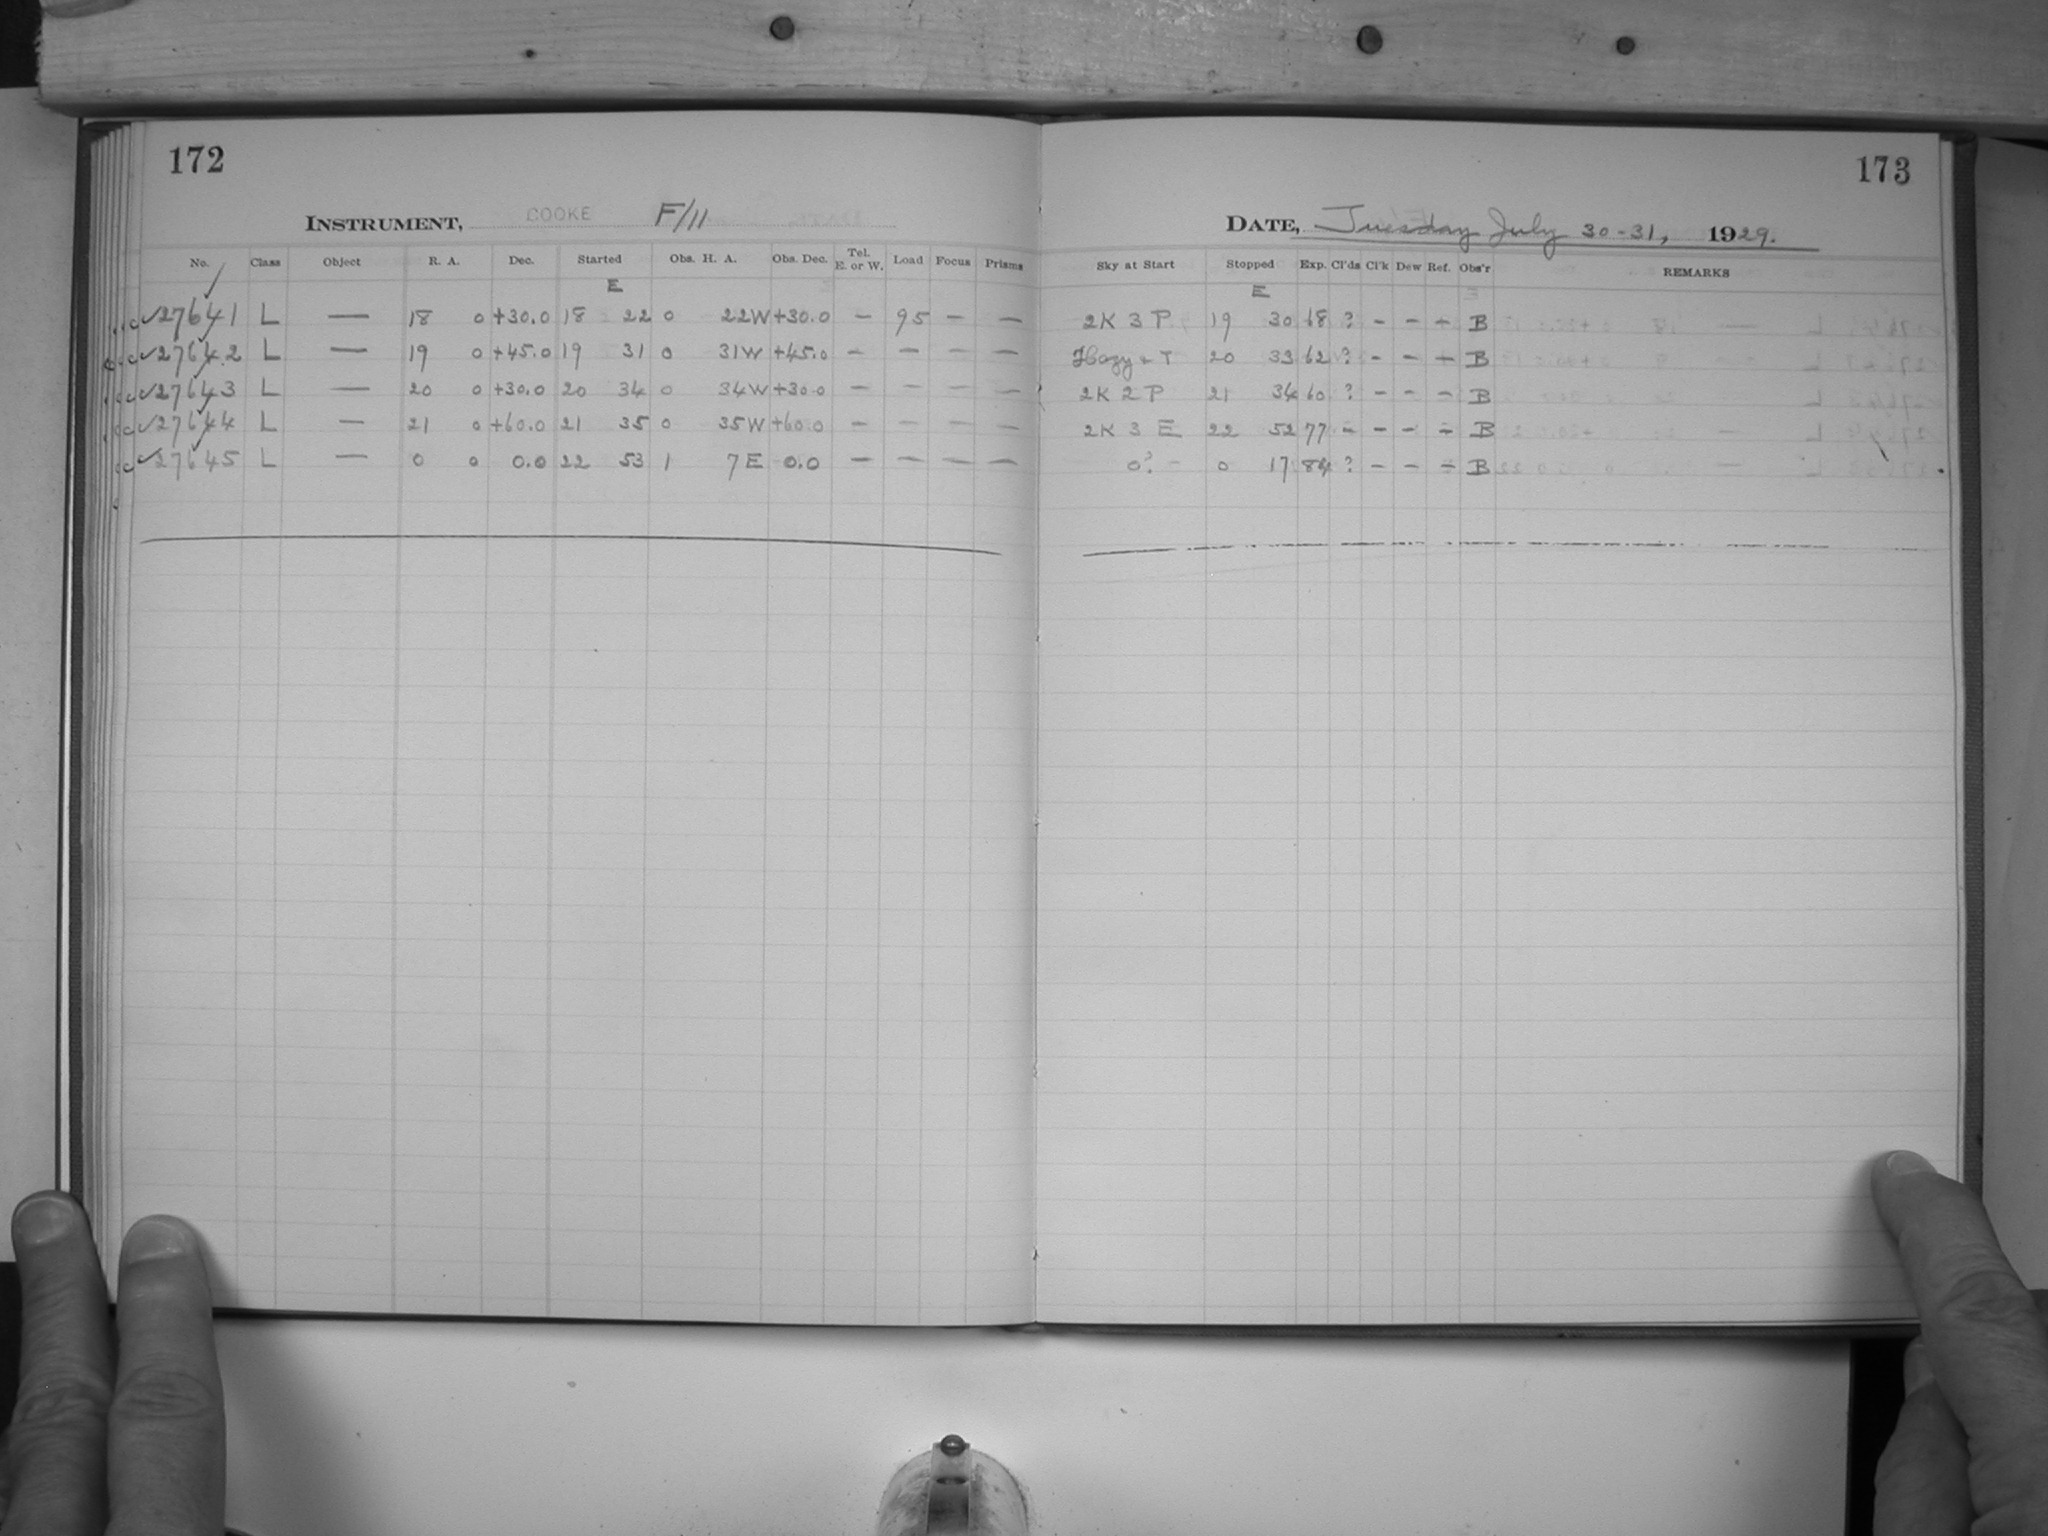 172
INSTRUMENT, COOKE F/11
No. Class Object R. A. Dec. Started Obs. H. A. Obs. Dec. Tel. E. or W. Load Focus Prisms
E
27641 L — 18 0 +30.0 18 22 0 22W +30.0 — 95 — —
27642 L — 19 0 +45.0 19 31 0 31W +45.0 — — — —
27643 L — 20 0 +30.0 20 34 0 34W +30.0 — — — —
27644 L — 21 0 +60.0 21 35 0 35W +60.0 — — — —
27645 L — 0 0 0.0 22 53 1 7E 0.0 — — — —
173
DATE, Tuesday July 30-31, 1929.
Sky at Start Stopped Exp. Cl'ds Cl'k Dew Ref. Obs'r REMARKS
E
2K 3 P 19 30 68 ? - - - B
Hazy + T 20 33 62 ? - - - B
2K 2 P 21 34 60 ? - - - B
2K 3 E 22 52 77 - - - - B
0? - 0 17 84 ? - - - B